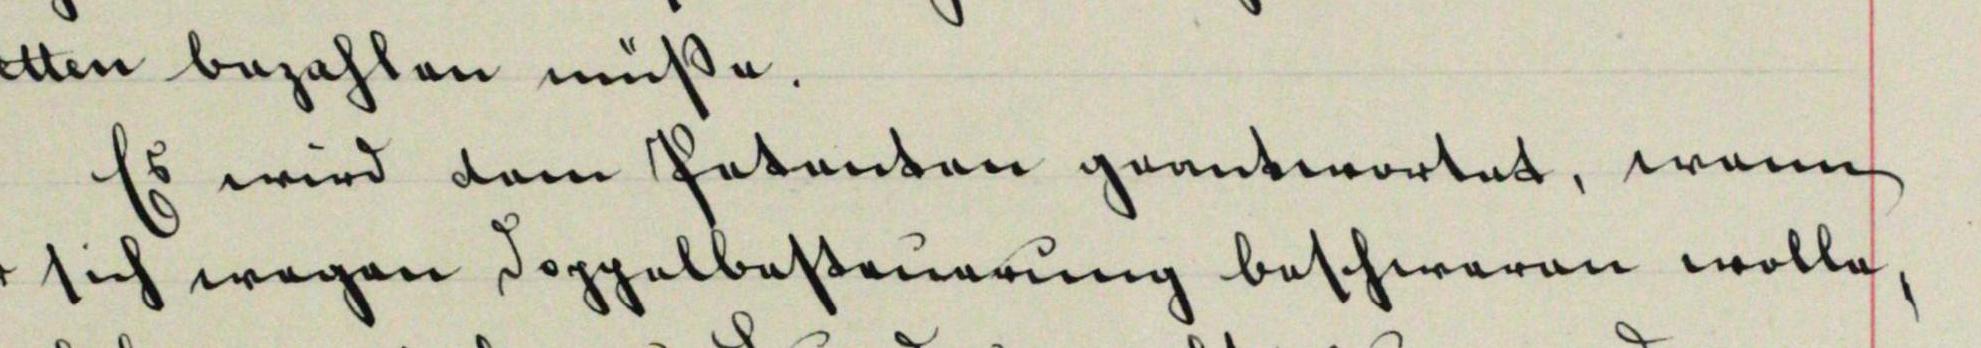 etten bezahlen müße.
Es wird dem Petenten geantwortet, wenn
sich wegen Doppelbesteuerung beschweren wolle,